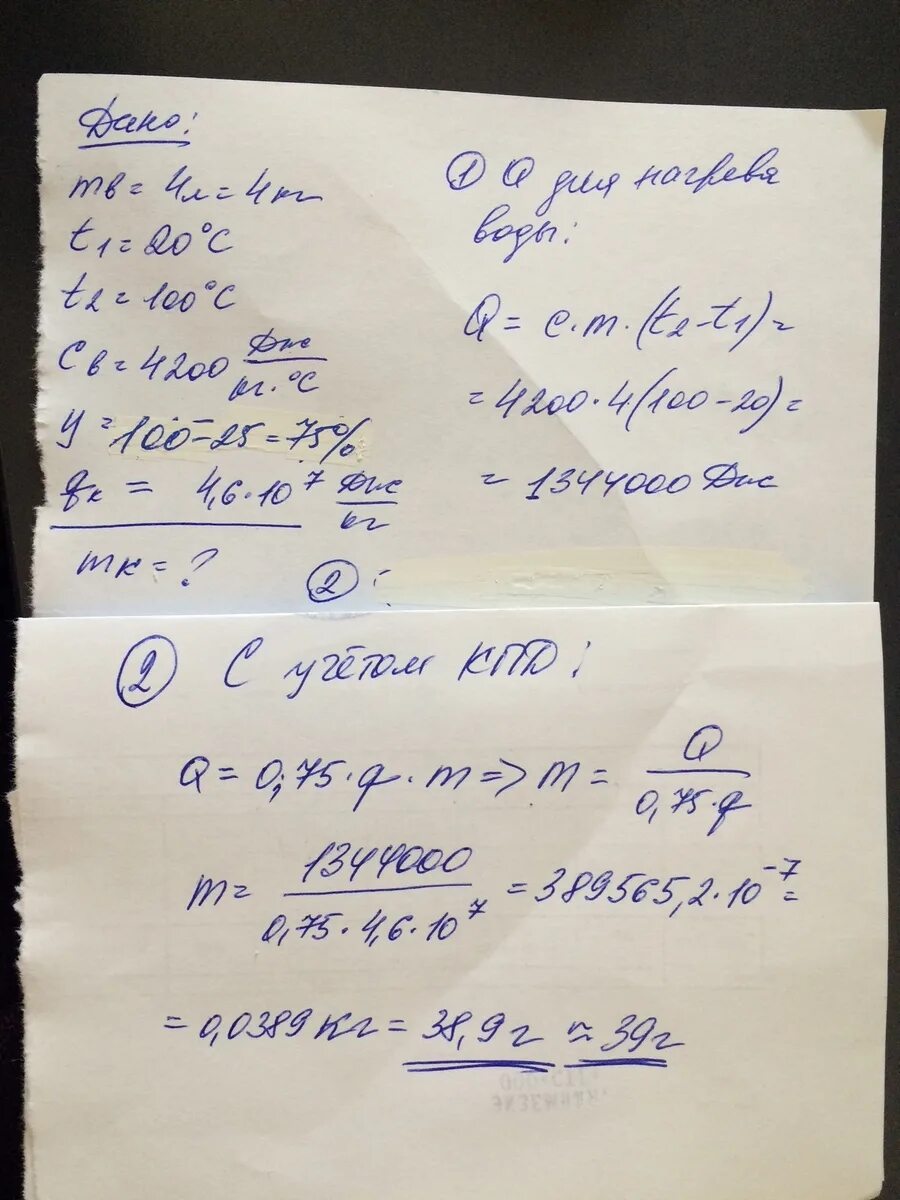 Дано:
mв = 4л = 4кг
t1 = 20°C
t2 = 100°C
Cв = 4200 Дж/кг·°C
y = 100-25 = 75%
qк = 4,6·10^7 Дж/кг
mк = ?
① Q для нагрева
воды:
Q = c·m·(t2-t1) =
= 4200·4(100-20) =
= 1344000 Дж
② :
② С учётом КПД:
Q = 0,75·q·m => m = Q/0,75·q
m = 1344000/0,75·4,6·10^7 = 389565,2·10^-7 =
= 0,0389 кг = 38,9 г ≈ 39 г